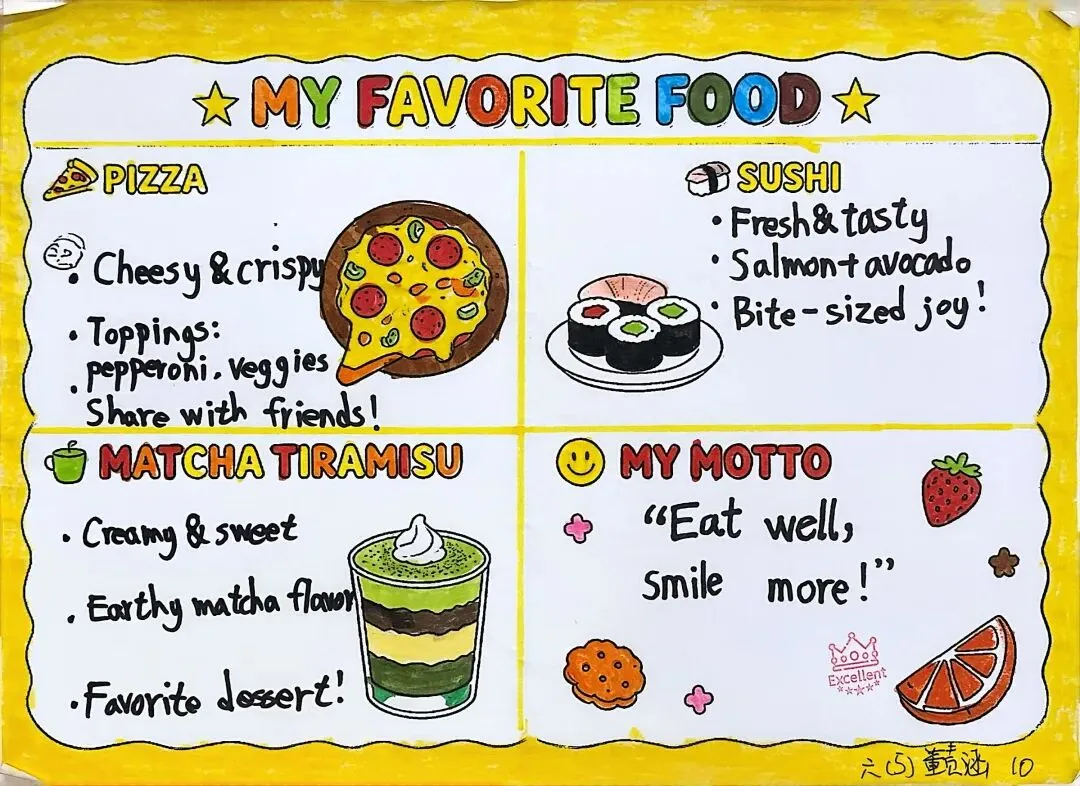 MY FAVORITE FOOD
PIZZA
• Cheesy & crispy
• Toppings:
pepperoni, veggies
• Share with friends!
SUSHI
• Fresh & tasty
• Salmon + avocado
• Bite-sized joy!
MATCHA TIRAMISU
• Creamy & sweet
• Earthy matcha flavor
• Favorite dessert!
MY MOTTO
“Eat well,
smile more!”
Excellent
六(5) 涵 10